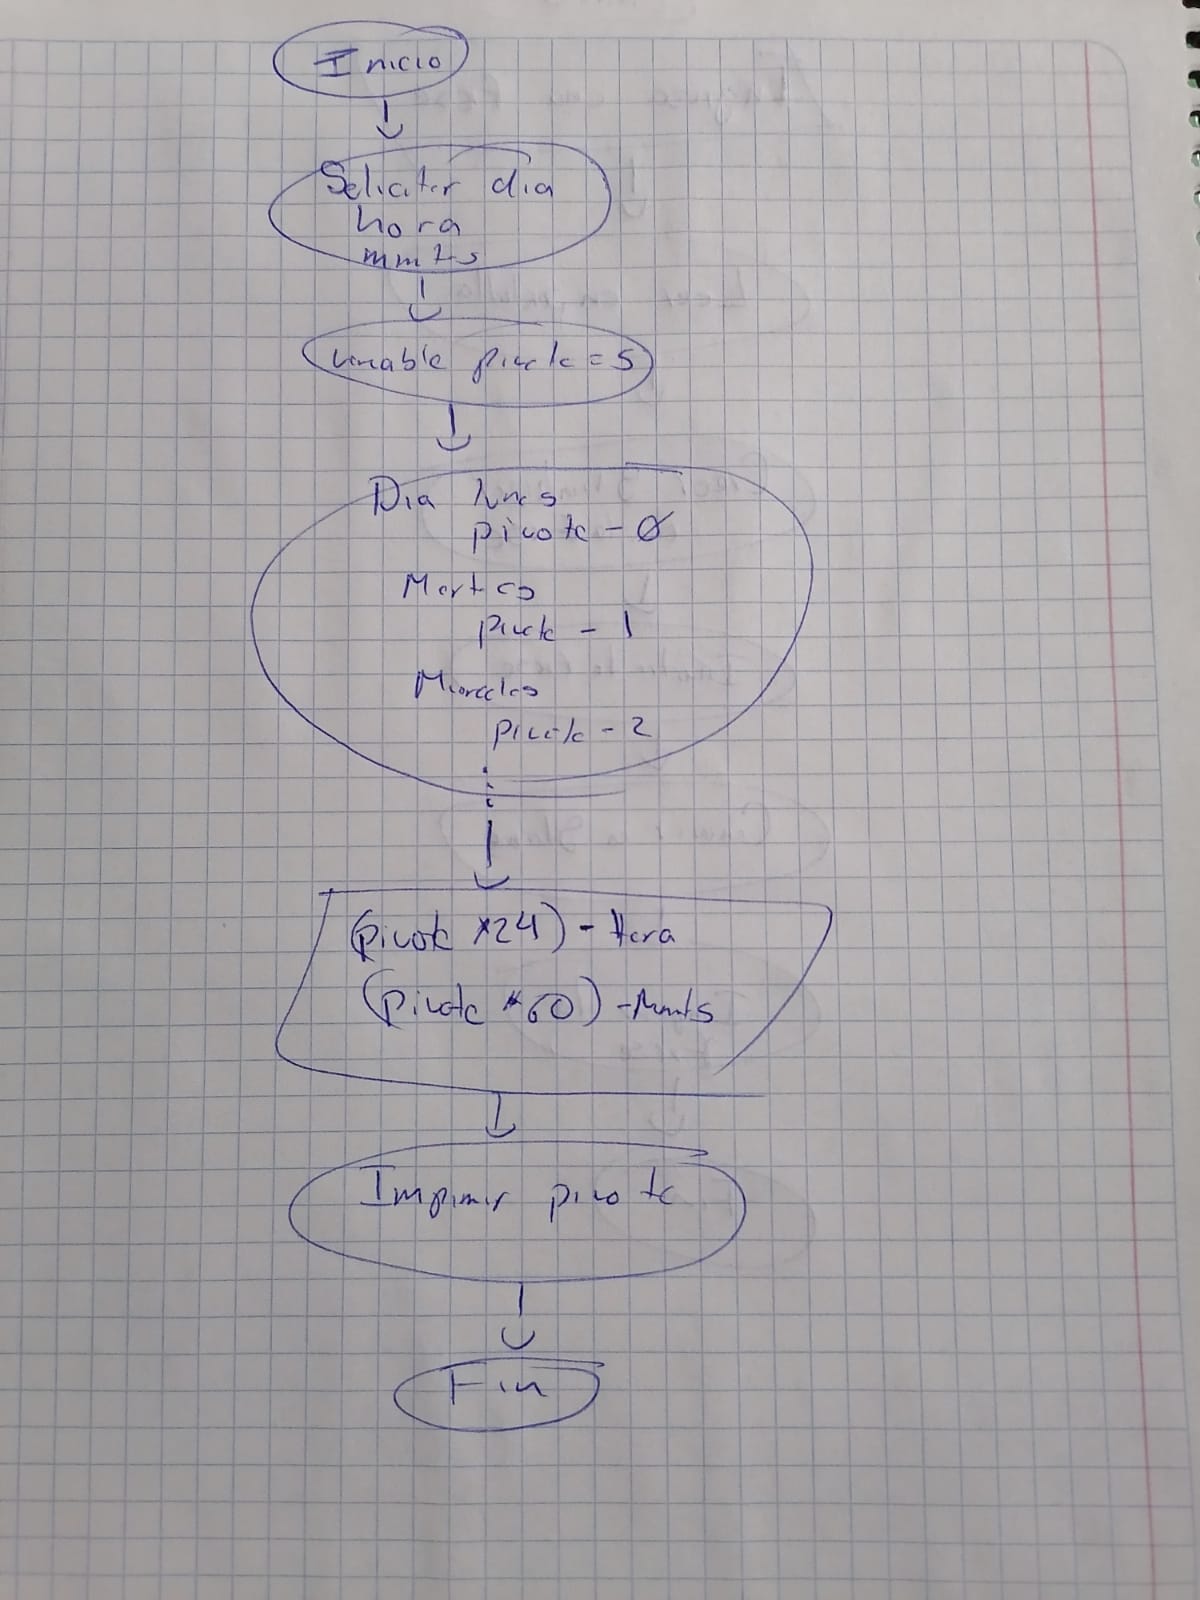 Inicio
Solicitar dia
hora
mmts
variable pivote = 5
Dia lunes
pivote - 0
Martes
pivote - 1
Miercoles
pivote - 2
(pivote *24) - Hora
(pivote *60) - Mmts
Imprimir pivote
Fin